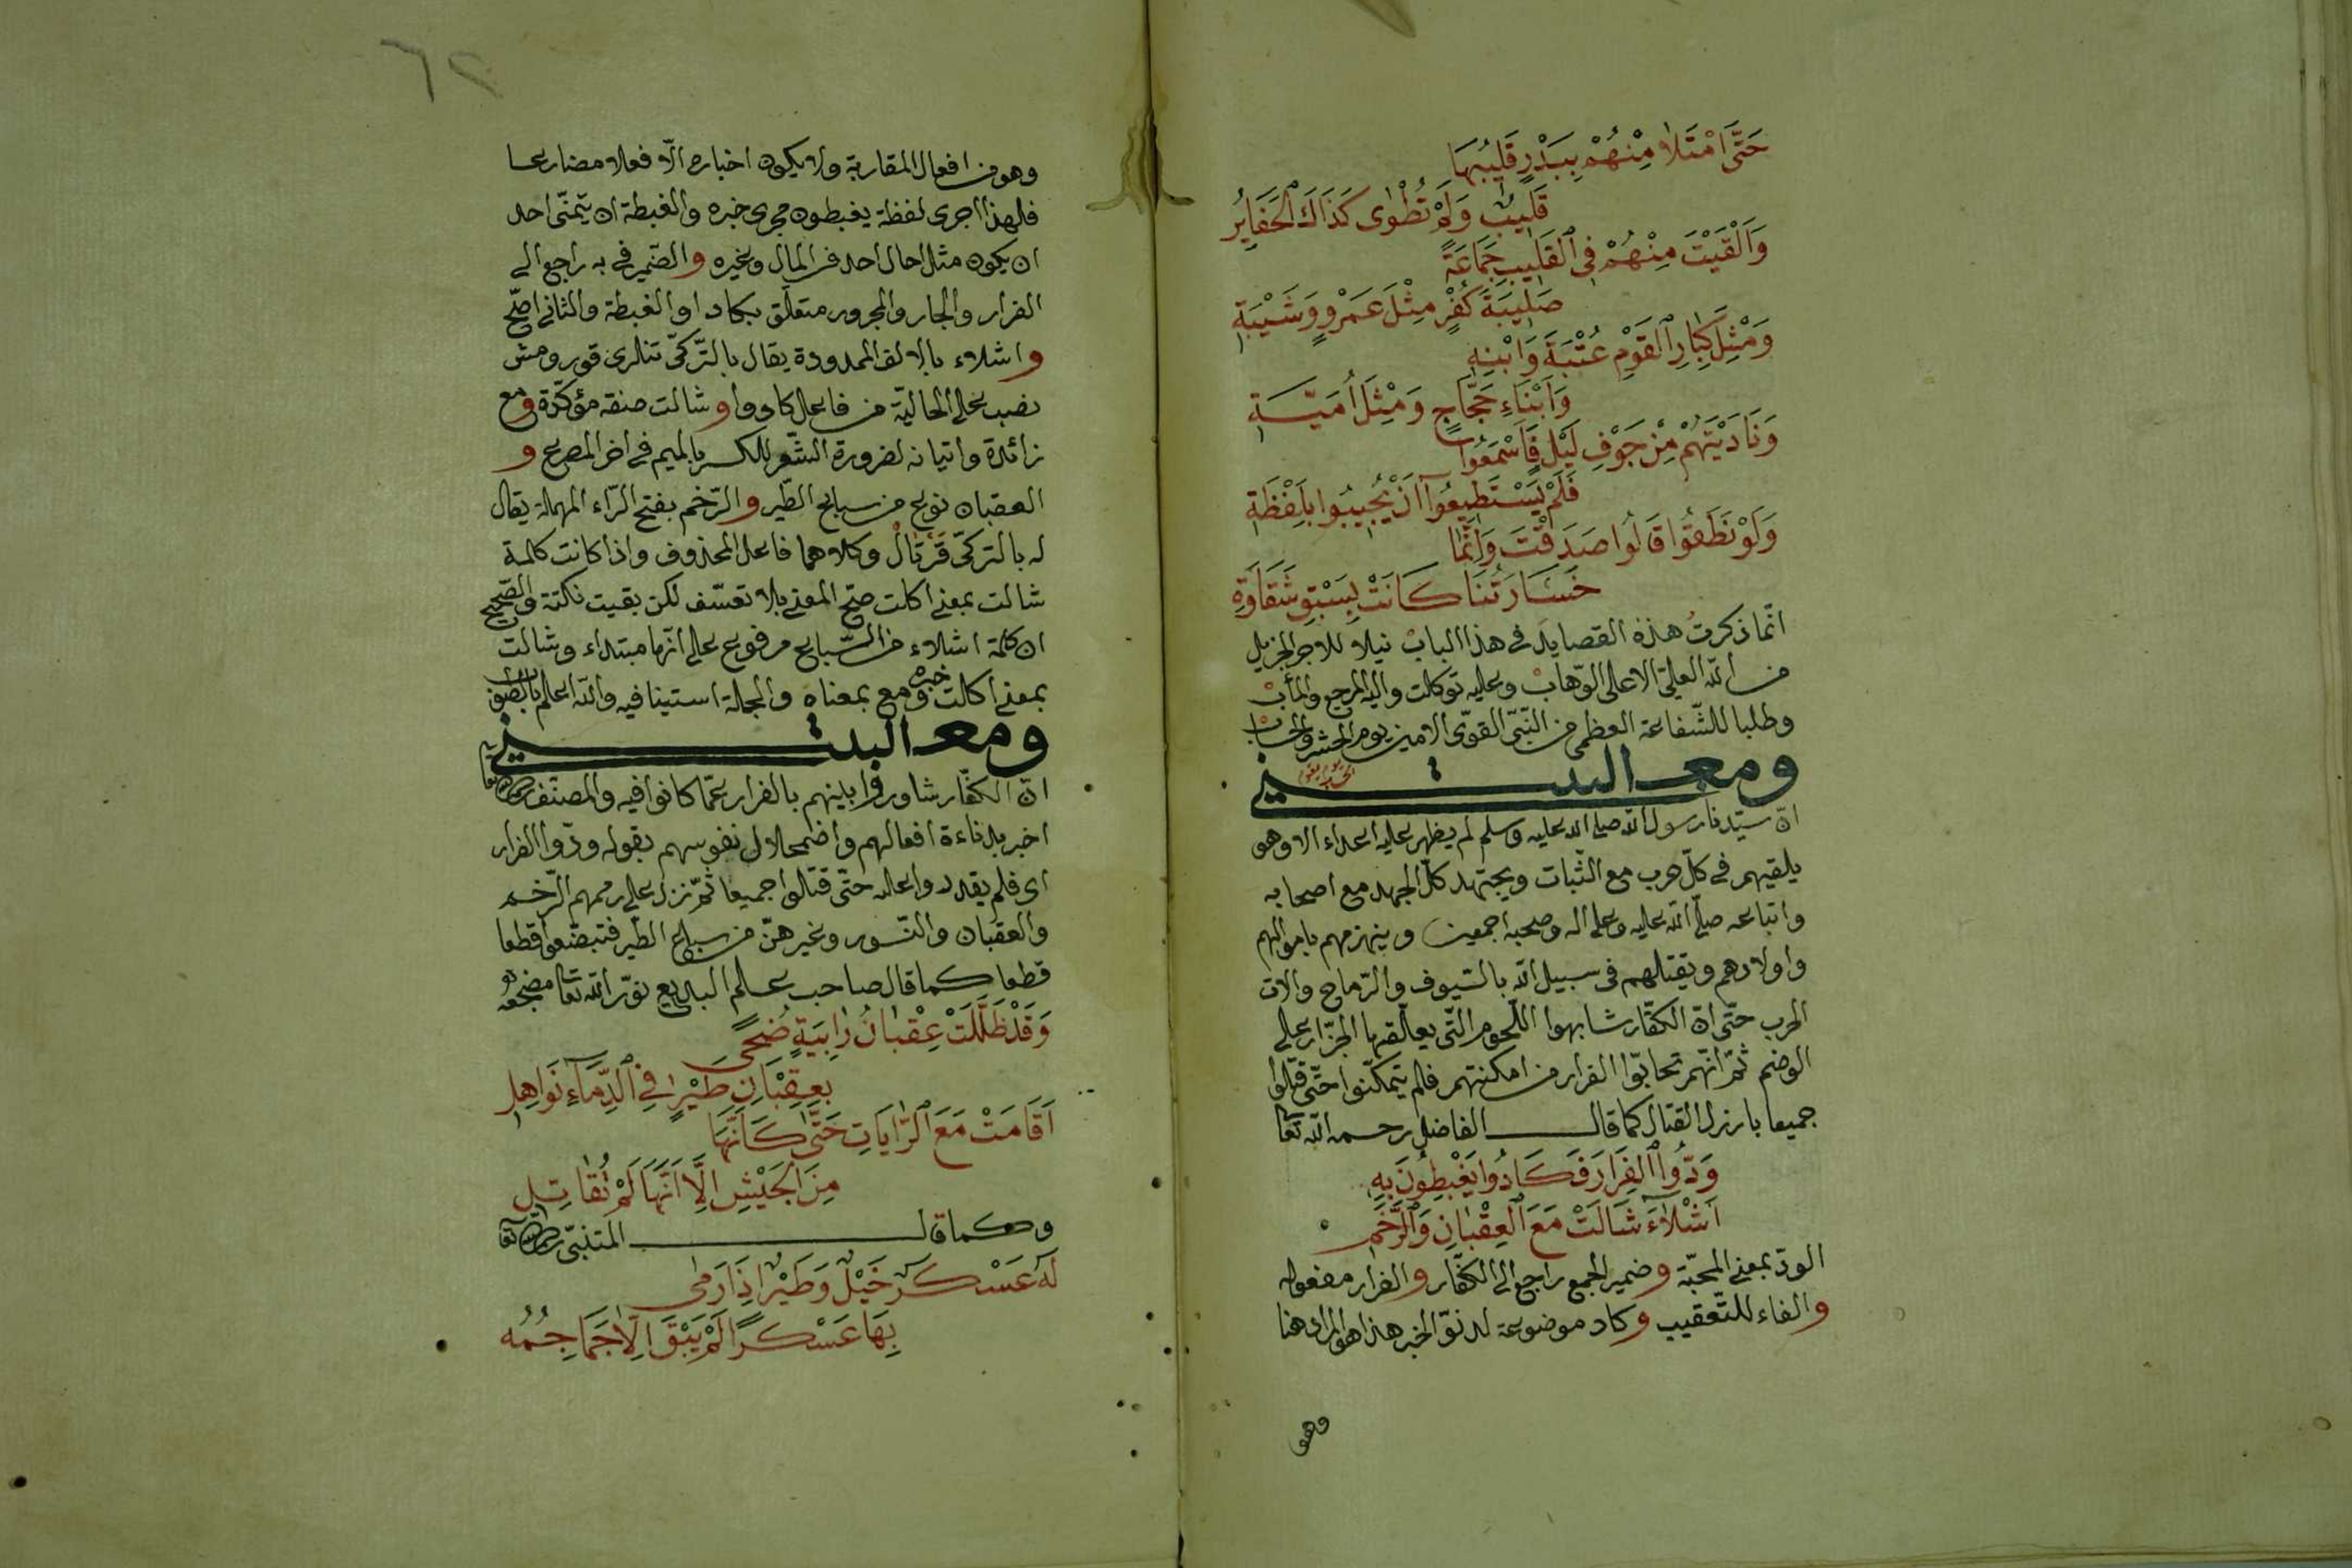 حَتَّى امْتَلَا مِنْهُمْ بِبَدْرٍ قَلِيبُهَا
قَلِيبٌ وَلَمْ تُطْوٰى كَذَاكَ الحَفَايِرُ
وَاَلْقَيْتَ مِنْهُمْ فِي القَلِيبِ جَمَاعَةً
صَلِيبَةَ كُفْرٍ مِثْلَ عَمْرٍو وَشَيْبَةِ
وَمْثِلَ كِبَارِ القَوْمِ عُتْبَةَ وَابْنِهِ
وَاَبْنَاءِ حَجَّاجٍ وَمْثِلَ اُمَيَّةِ
وَنَادَيْتَهُمْ مِنْ جَوْفِ لَيْلٍ فَاَسْمَعُوا
فَلَمْ يَسْتَطِيعُوا اَنْ يُجِيبُوا بِلَفْظَةِ
وَلَوْ نَطَقُوا قَالُوا صَدَقْتَ وَاِنَّمَا
خَسَارَتُنَا كَانَتْ بِسَبْقِ شَقَاوَةِ
انّما ذكرتُ هذه القصايد في هذا الباب نيلا للاجر الجزيل
من الله العليّ الاعلى الوهّاب وعليه توكلت واليه المرجع والمأب
وطلبا للشّفاعة العظمى من النّبيّ القويّ الامين يوم الحشر والحساب
ومعـ البيتـــني
انّ سيّدنا رسول الله صلى الله عليه وسلم لم يظهر عليه اعداء الا وهو
يلقيهم في كلّ حرب مع الثّبات ويجتهد كلّ الجهد مع اصحابه
واتباعه صلّى الله عليه وعلى اله وصحبه اجمعين وينهزمهم باموالهم
واولادهم ويقتلهم في سبيل الله بالسّيوف والرّماح والات
الحرب حتّى انّ الكفّار شابهوا اللّحوم الّتي يعالقها الجزّار على
الوضم ثمّ انّهم تحابّوا الفرار من امكنتهم فلم يتمكّنوا حتّى قتلوا
جميعا بارزل القتال كما قالـــ الفاضل رحمه الله تعا
وَدُّوا الفِرَارَ فَكَادُوا يَغْبِطُونَ بِهِ
اَشْلَاءَ شَالَتْ مَعَ العِقْبَانِ وَالرَّخَمِ
الودّ بمعنى المحبّة وضمير الجمع راجع الى الكفّار والفرار مفعوله
والفاء للتّعقيب وكاد موضوعة لدنوّ الخبر هذا هو المراد هنا
وهو
٦٢
وهو من افعال المقاربة ولا يكون اخباره الّا فعلا مضارعا
فلهذا اجرى لفظة يغبطون مجرى خبره والغبطة ان يتمنّى احد
ان يكون مثل حال احد في المال وغيره والضّمير في به راجع الى
الفرار والجار والمجرور متعلّق بكاد او الغبطة والثاني اصّح
واشلاء بالالف الممدودة يقال بالتّركيّ تنلرى قورومش
نصب على الحاليّة من فاعل كادوا وشالت صفته مؤكّدة ومع
زائدة واتيانه لضرورة الشّعر بالكسر بالميم في اخر المصرع و
العقبان نوع من سباع الطّير والرّخم بفتح الرّاء المهملة يقال
له بالتركيّ قَرْتَالْ وكلاهما فاعل المحذوف واذا كانت كلمة
شالت بمعنى اكلت صحّ المعنى بلا تعسّف لكن بقيت نكتة والصّحيح
ان كلمة اشلاء من السّباع مرفوع على انّها مبتداء وشالت
بمعنى اكلت خبره ومع بمعناه والجملة استينافيه والله اعلم بالصّواب
ومعـ البيتـــني
انّ الكفّار شاوروا بينهم بالفرار عمّا كانوا فيه والمصنّف رحمه الله تعا
اخبر بدناءة افعالهم واضمحلال نفوسهم بقوله ودّوا الفرار
اى فلم يقدروا عليه حتّى قتلوا جميعا ثمّ نزل على رممهم الرّخم
والعقبان والنّسور وغيرهنّ من سباع الطّير فتبضّعوا قطعا
قطعا كما قال صاحب علم البديع نوّر الله تعا مضجعه
وَقَدْ ظُلِّلَتْ عِقْبَانُ رَابِيَةٍ ضُحىً
بِعِقْبَانِ طَيْرٍ فِي الدِّمَاءِ نَوَاهِلِ
اَقَامَتْ مَعَ الرَّايَاتِ حَتَّى كَاَنَّهَا
مِنَ الجَيْشِ اِلَّا اَنَّهَا لَمْ تُقَاتِلِ
وكما قالـــ المتنبّي رحمه الله تعا
لَهُ عَسْكَرَ خَيْلٍ وَطَيْرٍ اِذَا رَمٰى
بِهَا عَسْكَرًا لَمْ يَبْقَ اِلَّا جَمَاجِمُه